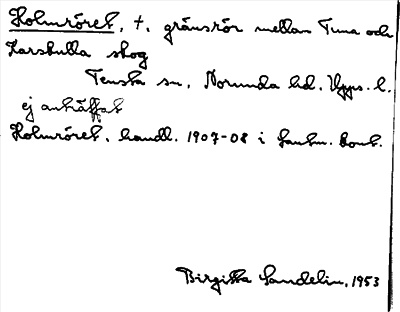 Holmröret, †, gränsrör mellan Tuna och
Larsbulla skog
Tensta sn, Norunda hd. Upps. l.
ej anträffat
Holmröret, handl. 1907-08 i lantm. kont.
Birgitta Sandelin, 1953